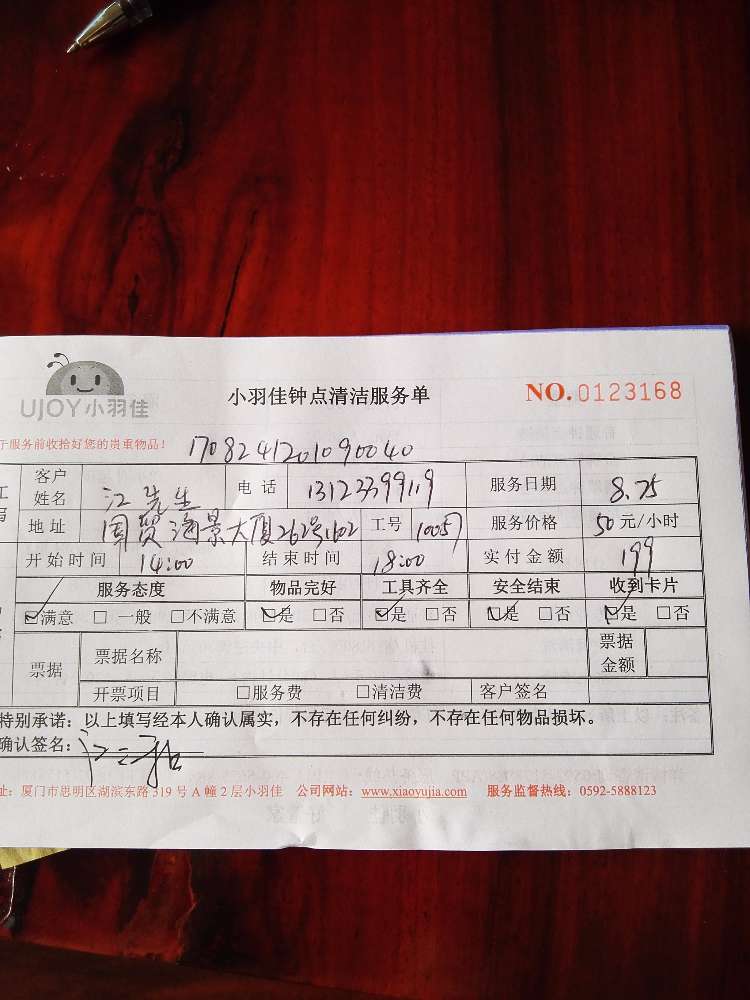 UJOY小羽佳
小羽佳钟点清洁服务单 NO.0123168
于服务前收拾好您的贵重物品! 1708241201090040
客户姓名 江先生 电话 13123399119 服务日期 8.25
地址 国贸海景大厦262号1602 工号 10057 服务价格 50元/小时
开始时间 14:00 结束时间 18:00 实付金额 199
服务态度 物品完好 工具齐全 安全结束 收到卡片
☑满意 □一般 □不满意 ☑是 □否 ☑是 □否 ☑是 □否 ☑是 □否
票据 票据名称 票据金额
开票项目 □服务费 □清洁费 客户签名
特别承诺:以上填写经本人确认属实,不存在任何纠纷,不存在任何物品损坏。
确认签名:
址:厦门市思明区湖滨东路319号A幢2层小羽佳 公司网站:www.xiaoyujia.com 服务监督热线:0592-5888123